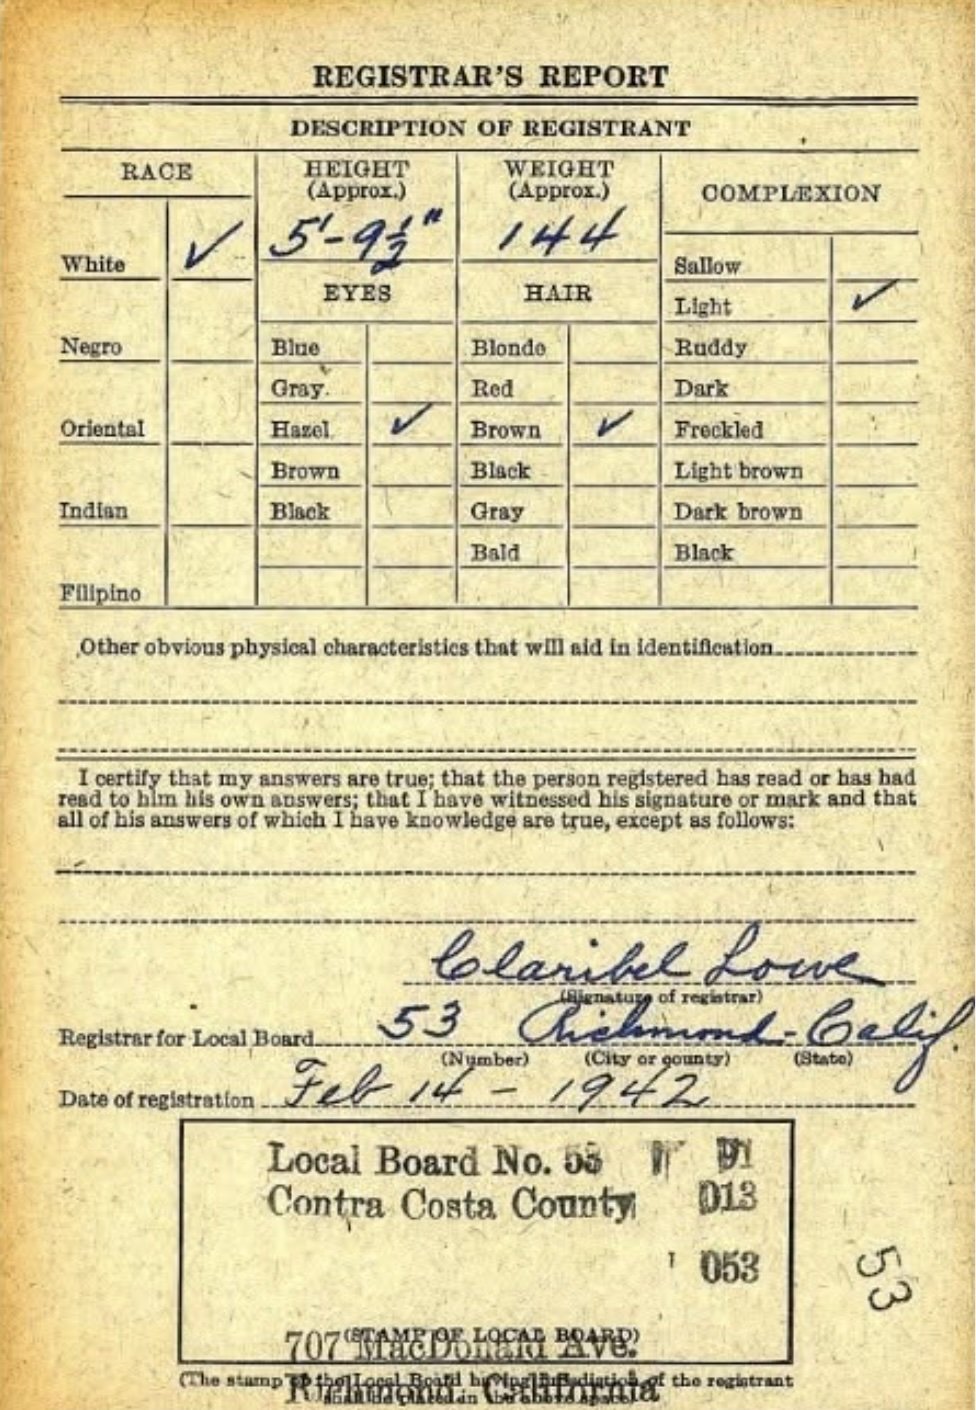 REGISTRAR'S REPORT
DESCRIPTION OF REGISTRANT
RACE
HEIGHT
(Approx.)
WEIGHT
(Approx.)
COMPLEXION
White ✓
5'-9½"
144
Sallow
EYES
HAIR
Light ✓
Negro
Blue
Blonde
Ruddy
Gray
Red
Dark
Oriental
Hazel ✓
Brown ✓
Freckled
Brown
Black
Light brown
Indian
Black
Gray
Dark brown
Bald
Black
Filipino
Other obvious physical characteristics that will aid in identification
I certify that my answers are true; that the person registered has read or has had
read to him his own answers; that I have witnessed his signature or mark and that
all of his answers of which I have knowledge are true, except as follows:
Claribel Lowe
(Signature of registrar)
Registrar for Local Board 53 Richmond - Calif.
(Number) (City or county) (State)
Date of registration Feb 14 - 1942
Local Board No. 53
Contra Costa County 013
053
53
(STAMP OF LOCAL BOARD)
707 MacDonald Ave.
(The stamp of the Local Board having jurisdiction of the registrant
shall be placed in the above space)
Richmond, California